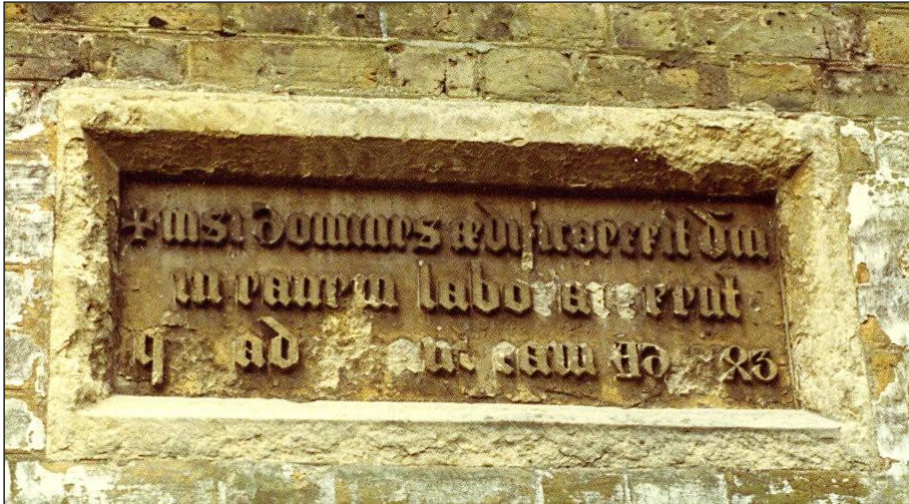 + nisi dominus ædificaverit dm
in vanum laboraverunt
q ad eam AD 83